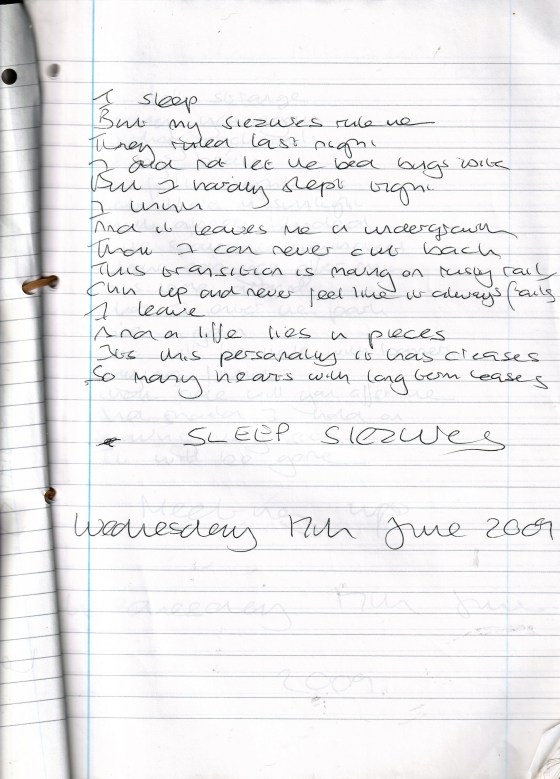 I sleep
But my siezures rule me
They ruled last night
I did not let the bed bugs bite
But I hardly slept tight
I think
And it leaves me in undergrowth
That I can never cut back
This transition is moving on rusty rail
Chin up and never feel like it always fails
I leave
And a life lies in pieces
Its this personality it has creases
So many hearts with long term leases
SLEEP SIEZURES
Wednesday 17th June 2009